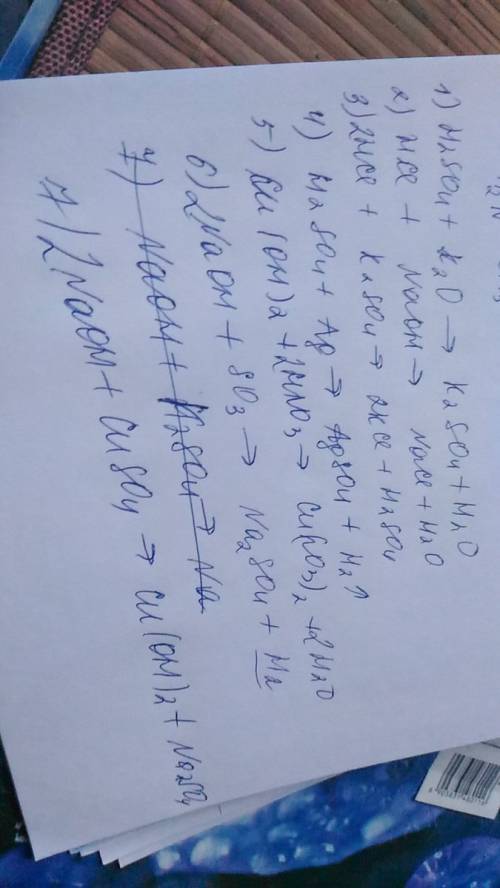 1) H2SO4 + K2O → K2SO4 + H2O
2) HCl + NaOH → NaCl + H2O
3) 2HCl + K2SO4 → 2KCl + H2SO4
4) H2SO4 + Ag → AgSO4 + H2↑
5) Cu(OH)2 + 2HNO3 → Cu(NO3)2 + 2H2O
6) 2NaOH + SO3 → Na2SO4 + H2
7) NaOH + H2SO4 → Na
7) 2NaOH + CuSO4 → Cu(OH)2 + Na2SO4